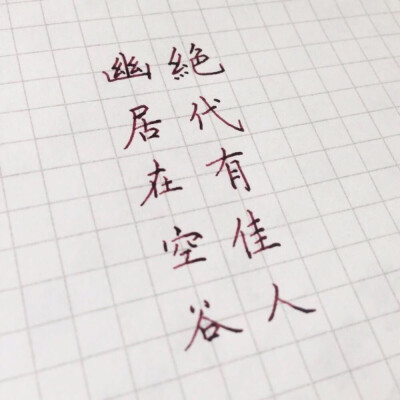 絶代有佳人
幽居在空谷